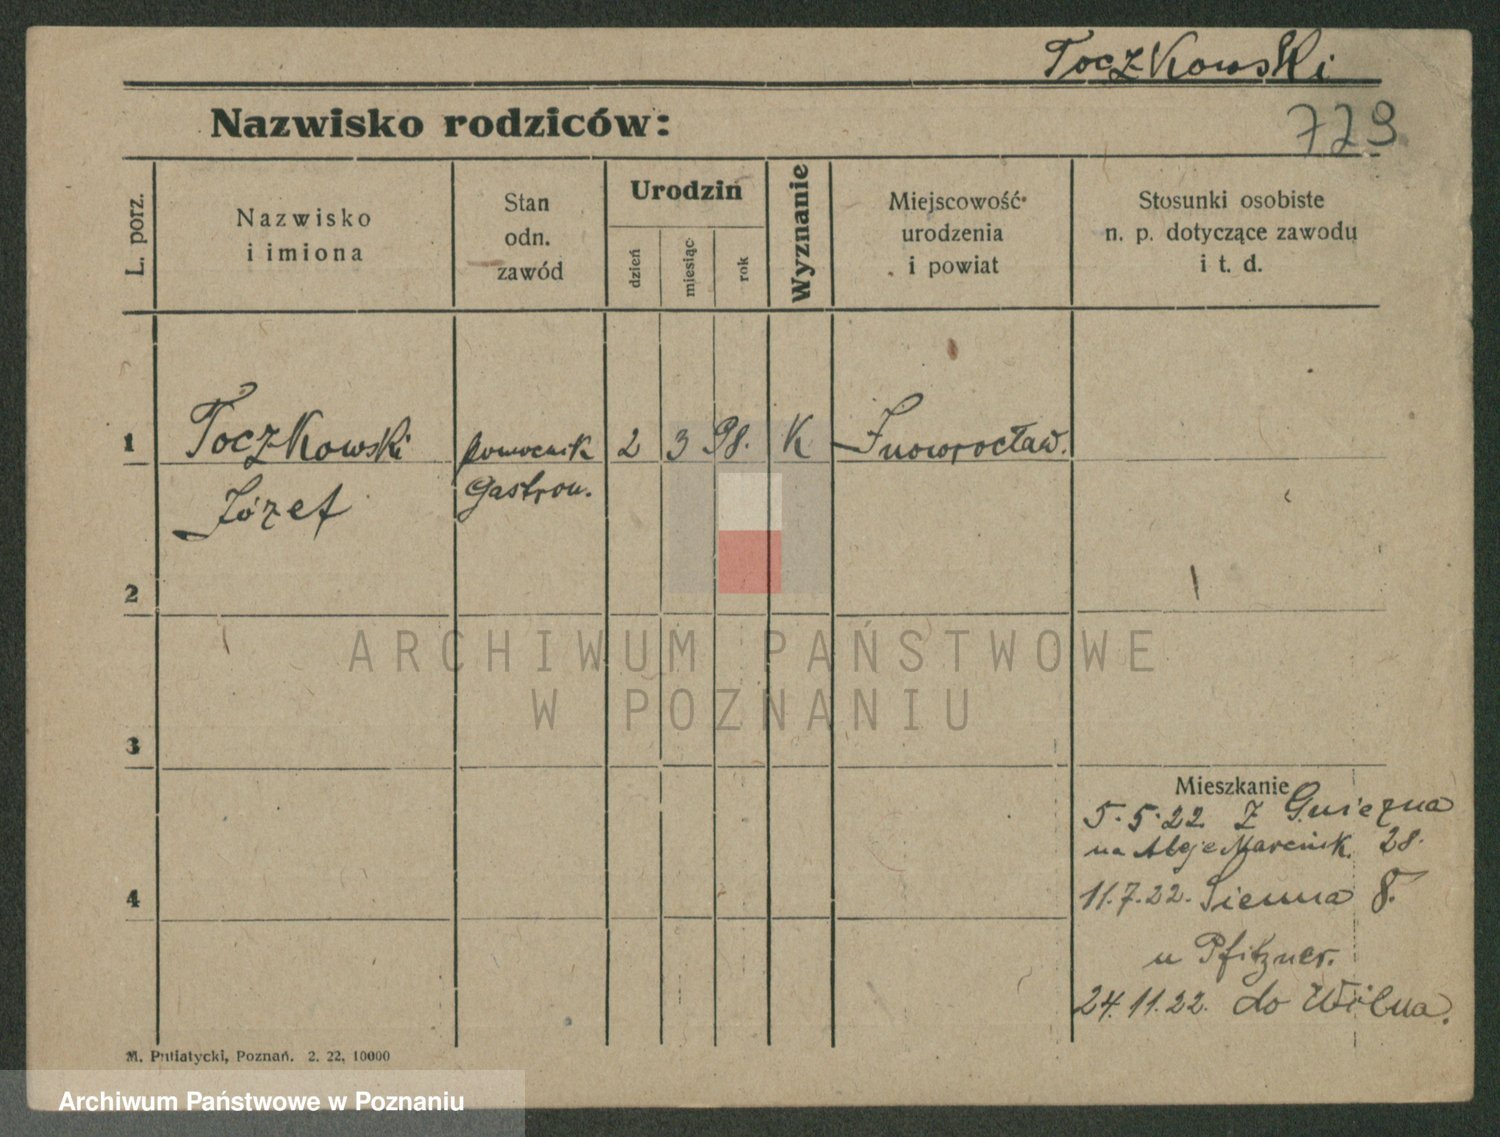 Toczkowski
Nazwisko rodziców:
729
L. porz.
Nazwisko
i imiona
Stan
odn.
zawód
Urodzin
dzień
miesiąc
rok
Wyznanie
Miejscowość
urodzenia
i powiat
Stosunki osobiste
n. p. dotyczące zawodu
i t. d.
1 Toczkowski pomocnik 2 3 98. K Inowrocław.
Józef Gastron.
2
ARCHIWUM PAŃSTWOWE
W POZNANIU
3
Mieszkanie
5.5.22 Z Gniezna
na Aleje Marcink. 28.
4
11.7.22. Sienna 8.
u Pfitzner.
24.11.22. do Wilna.
M. Putiatycki, Poznań. 2. 22. 10000
Archiwum Państwowe w Poznaniu